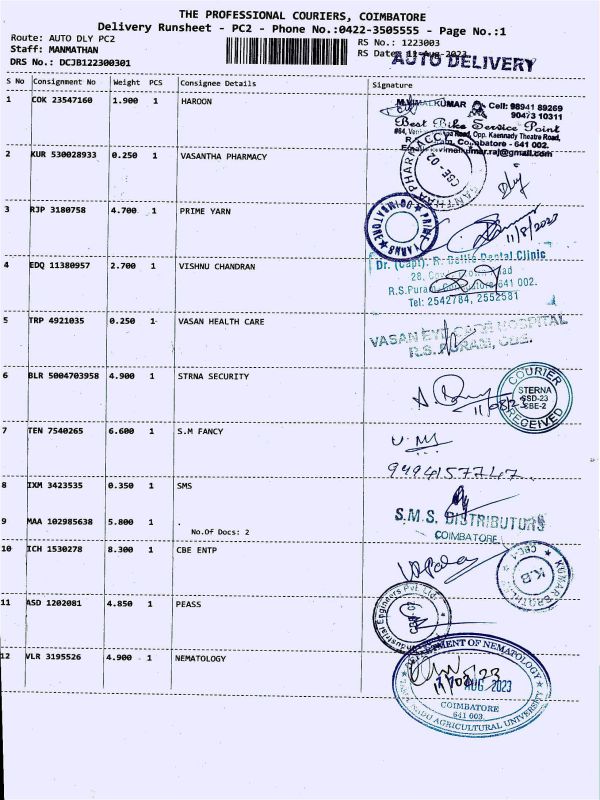 THE PROFESSIONAL COURIERS, COIMBATORE
Delivery Runsheet - PC2 - Phone No.:0422-3505555 - Page No.:1
Route: AUTO DLY PC2
RS No.: 1223003
Staff: MANMATHAN
RS Date: 11-Aug-2023
DRS No.: DCJB122300301
AUTO DELIVERY
S No Consignment No Weight PCS Consignee Details Signature
1 COK 23547160 1.900 1 HAROON
M.VIMALKUMAR Cell: 98941 89269
90473 10311
Best Bike Service Point
Road, Opp. Kaennady Theatre Road,
Coimbatore - 641 002.
vimalkumar.raj@gmail.com
2 KUR 530028933 0.250 1 VASANTHA PHARMACY
CBE - 02
3 RJP 3180758 4.700 1 PRIME YARN
PRIME YARNS COIMBATORE
11/8/2023
4 EDQ 11380957 2.700 1 VISHNU CHANDRAN
Dr. (Capt). R. Dental Clinic
28,
R.S.Puram, Coimbatore 641 002.
Tel: 2542784, 2552581
5 TRP 4921035 0.250 1 VASAN HEALTH CARE
VASAN EYE CARE HOSPITAL
R.S. PURAM, CBE.
6 BLR 5004703958 4.900 1 STRNA SECURITY
COURIER
STERNA
SSD-23
CBE-2
RECEIVED
7 TEN 7540265 6.600 1 S.M FANCY
8 IXM 3423535 0.350 1 SMS
S.M.S. DISTRIBUTORS
COIMBATORE
9 MAA 102985638 5.800 1 .
No.Of Docs: 2
10 ICH 1530278 8.300 1 CBE ENTP
K.B
11 ASD 1202081 4.850 1 PEASS
Industrial Engineers Pvt. Ltd.
12 VLR 3195526 4.900 1 NEMATOLOGY
DEPARTMENT OF NEMATOLOGY
AUG 2023
COIMBATORE
641 003
TAMIL NADU AGRICULTURAL UNIVERSITY